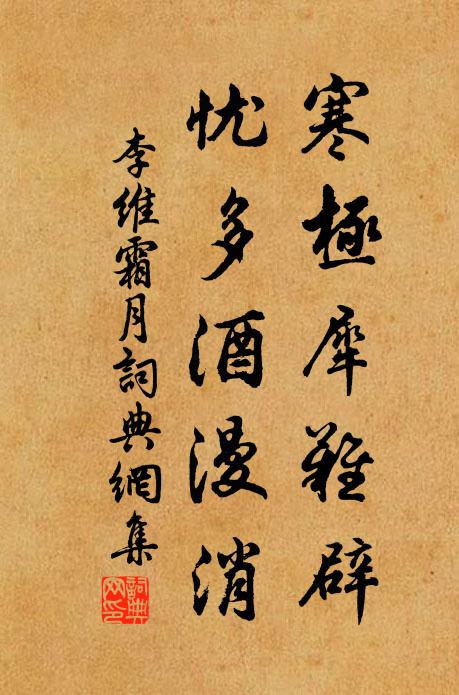 寒極犀難辟
忧多酒漫消
李維霜月詞典網集
詞典网印